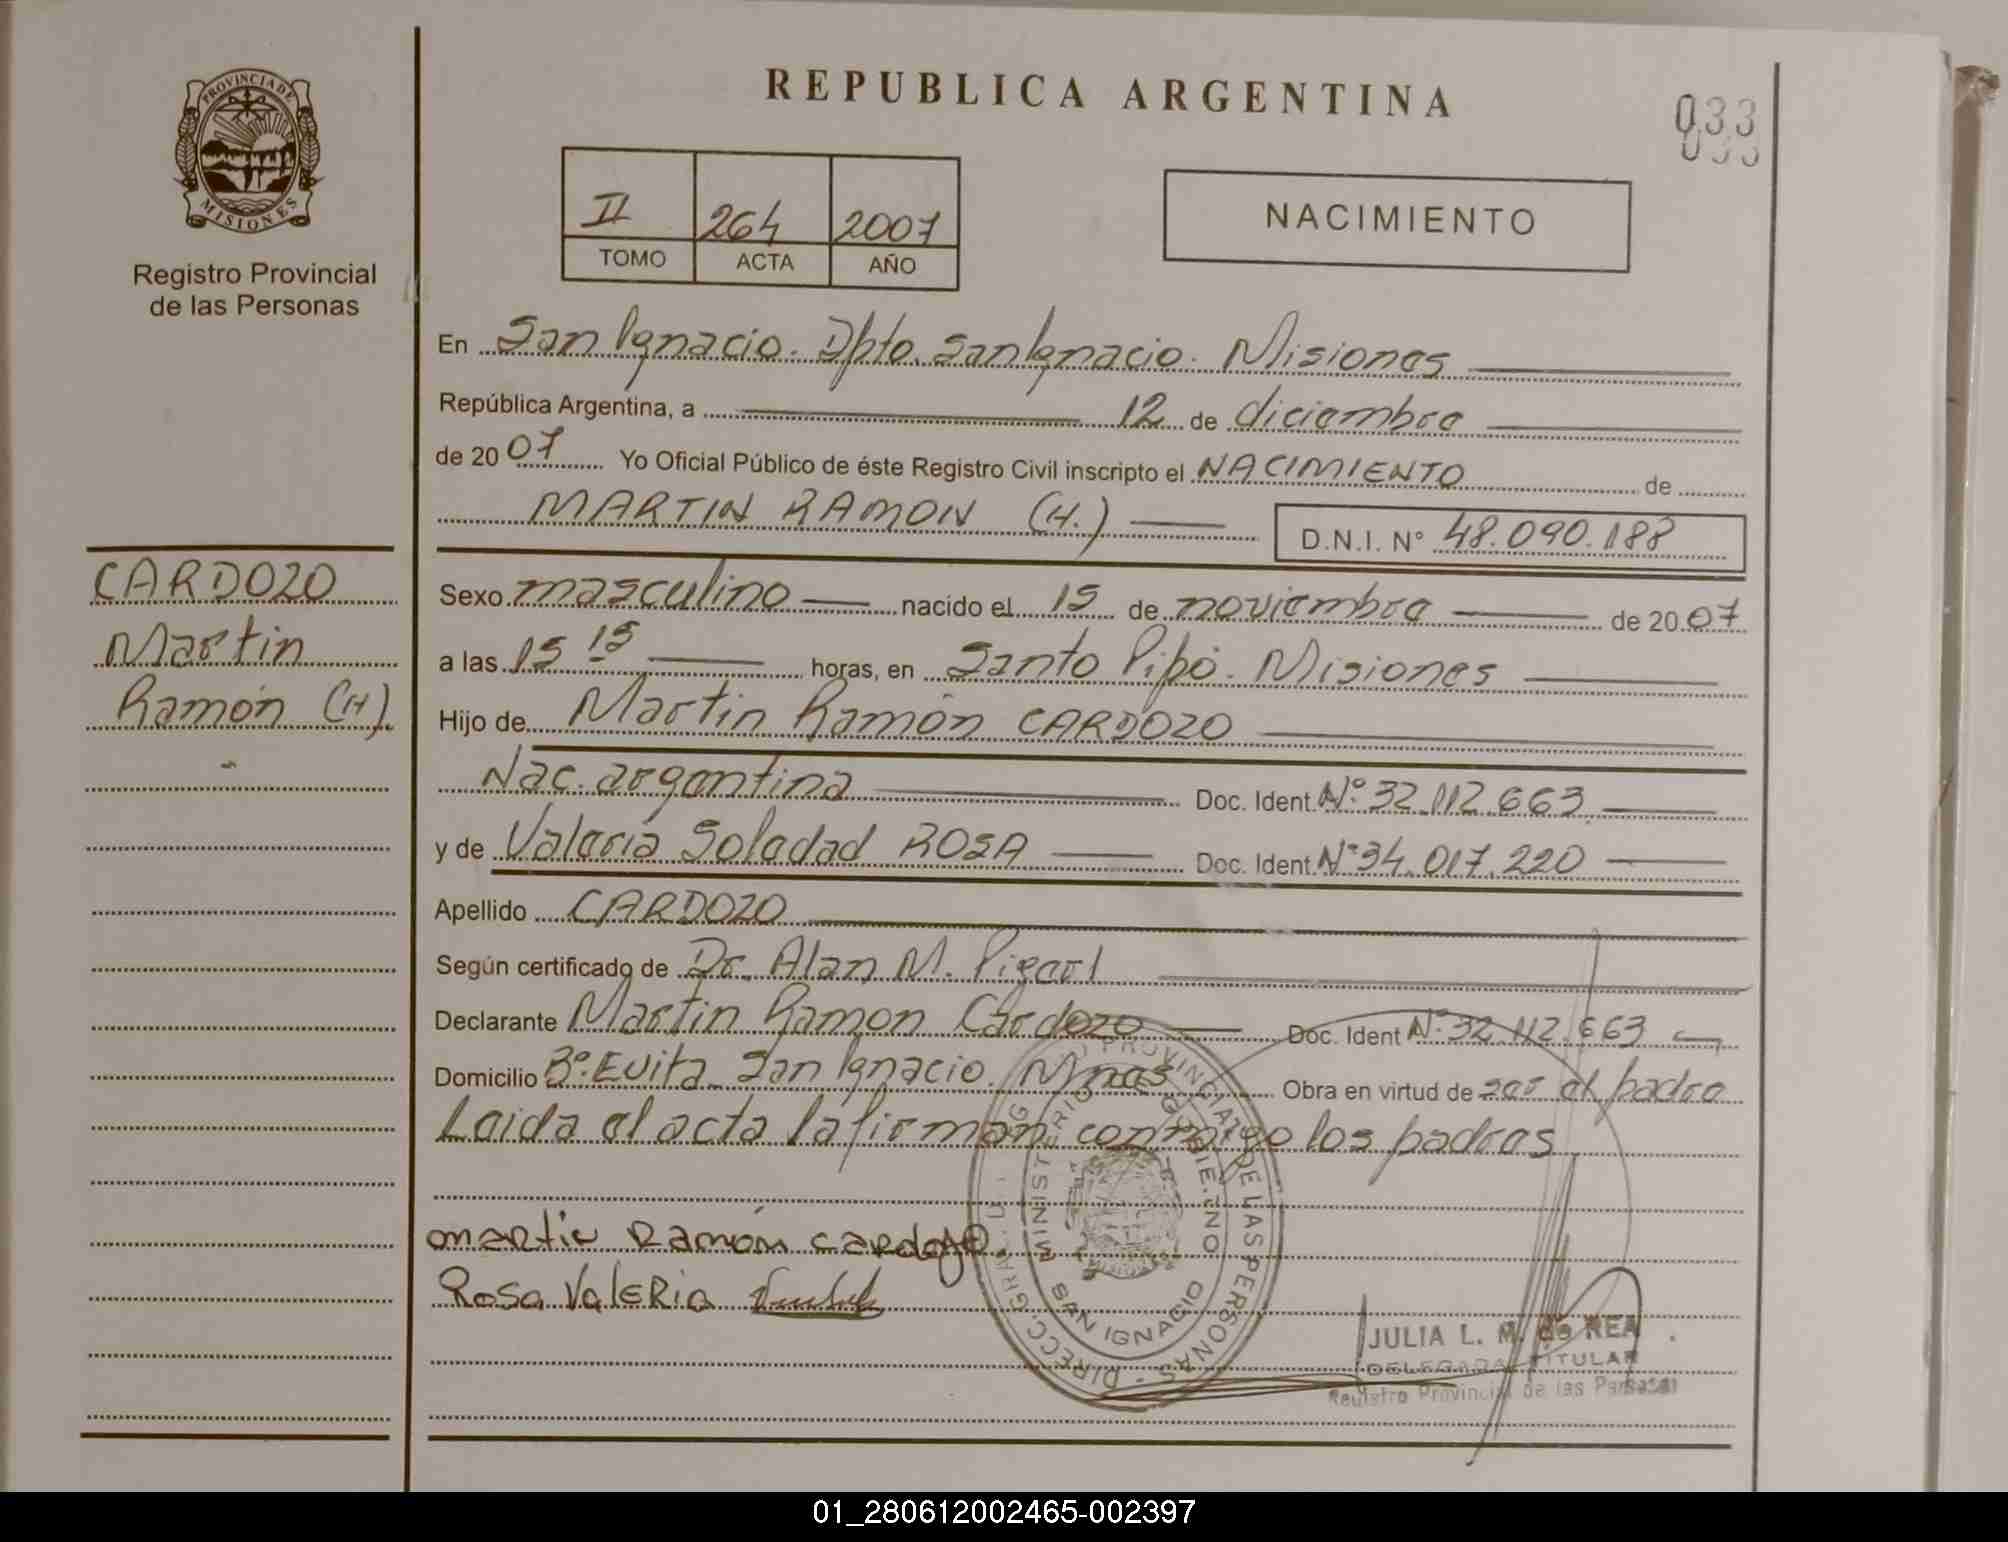 PROVINCIA DE
MISIONES
Registro Provincial
de las Personas
REPUBLICA ARGENTINA
033
II 264 2007
TOMO ACTA AÑO
NACIMIENTO
En San Ignacio. Dpto. San Ignacio. Misiones
República Argentina, a 12 de diciembre
de 2007 Yo Oficial Público de éste Registro Civil inscripto el NACIMIENTO de
MARTIN RAMON (H.) D.N.I. N° 48.090.188
CARDOZO
Martin
Ramón (H).
Sexo masculino nacido el 15 de noviembre de 2007
a las 15 15 horas, en Santo Pipó. Misiones
Hijo de Martin Ramón CARDOZO
Nac. argentina Doc. Ident. N°. 32.112.663
y de Valeria Soledad ROSA Doc. Ident. N° 34.017.220
Apellido CARDOZO
Según certificado de Dr. Alan M.
Declarante Martin Ramon Cardozo Doc. Ident N° 32.112.663
Domicilio B°. Evita. San Ignacio. Mnes Obra en virtud de ser el padre
Leida el acta la firman conmigo los padres
martin Ramón cardozo.
Rosa Valeria
PROVINCIAL DE LAS PERSONAS - DIRECC. GRAL.
MINISTERIO DE GOBIERNO
SAN IGNACIO
JULIA L. M. de REA
DELEGADA TITULAR
Registro Provincial de las Personas
01_280612002465-002397